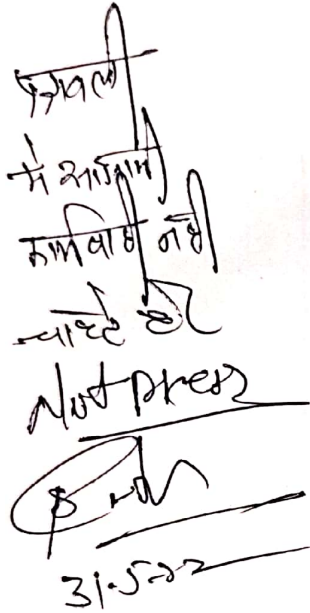 पत्रावली
में आगामी
कार्यवाही नही
चाहते है
Not press
31.5.22